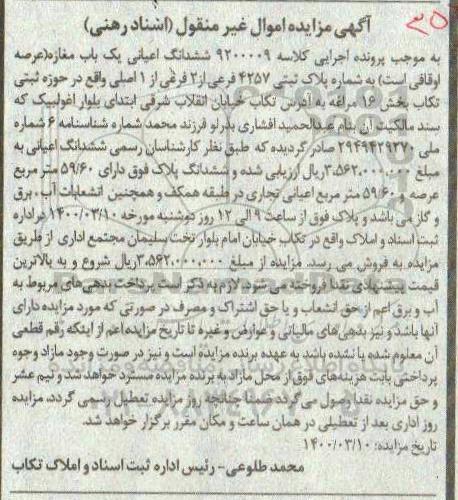 ۳۵
آگهی مزایده اموال غیر منقول (اسناد رهنی)
به موجب پرونده اجرایی کلاسه ۹۲۰۰۰۰۹ ششدانگ اعیانی یک باب مغازه(عرصه
اوقافی است) به شماره پلاک ثبتی ۴۲۵۷ فرعی از۲ فرعی از ۱ اصلی واقع در حوزه ثبتی
تکاب بخش ۱۶ مراغه به آدرس تکاب خیابان انقلاب شرقی ابتدای بلوار اغولبیک که
سند مالکیت آن بنام عبدالحمید افشاری بدرلو فرزند محمد شماره شناسنامه ۶ شماره
ملی ۲۹۴۹۴۲۹۳۷۰ صادر گردیده که طبق نظر کارشناسان رسمی ششدانگ اعیانی به
مبلغ ۳،۵۶۲،۰۰۰،۰۰۰ریال ارزیابی شده و ششدانگ پلاک فوق دارای ۵۹/۶۰ متر مربع
عرصه و ۵۹/۶۰ متر مربع اعیانی تجاری در طبقه همکف و همچنین انشعابات آب، برق
و گاز می باشد و پلاک فوق از ساعت ۹ الی ۱۲ روز دوشنبه مورخه ۱۴۰۰/۰۳/۱۰ در اداره
ثبت اسناد و املاک واقع در تکاب خیابان امام بلوار تخت سلیمان مجتمع اداری از طریق
مزایده به فروش می رسد. مزایده از مبلغ ۳،۵۶۲،۰۰۰،۰۰۰ریال شروع و به بالاترین
قیمت پیشنهادی نقدا فروخته می شود. لازم به ذکر است پرداخت بدهی های مربوط به
آب و برق اعم از حق انشعاب و یا حق اشتراک و مصرف در صورتی که مورد مزایده دارای
آنها باشد و نیز بدهی های مالیاتی و عوارض و غیره تا تاریخ مزایده اعم از اینکه رقم قطعی
آن معلوم شده یا نشده باشد به عهده برنده مزایده است و نیز در صورت وجود مازاد وجوه
پرداختی بابت هزینه های فوق از محل مازاد به برنده مزایده مسترد خواهد شد و نیم عشر
و حق مزایده نقدا وصول می گردد ضمنا چنانچه روز مزایده تعطیل رسمی گردد، مزایده
روز اداری بعد از تعطیلی در همان ساعت و مکان مقرر برگزار خواهد شد.
تاریخ مزایده: ۱۴۰۰/۰۳/۱۰
محمد طلوعی- رئیس اداره ثبت اسناد و املاک تکاب